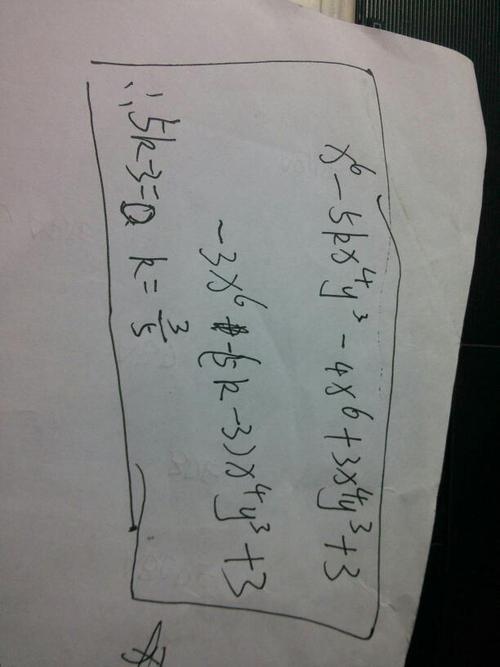 x⁶ - 5kx⁴y³ - 4x⁶ + 3x⁴y³ + 3
-3x⁶ - (5k - 3)x⁴y³ + 3
∴ 5k - 3 = 0 k = 3/5